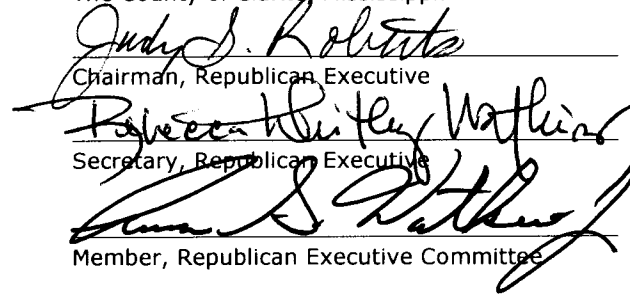 The County of Clarke, Mississippi
Judy S. Roberts
Chairman, Republican Executive
Rebecca Whitley Watkins
Secretary, Republican Executive
S. Watkins
Member, Republican Executive Committee